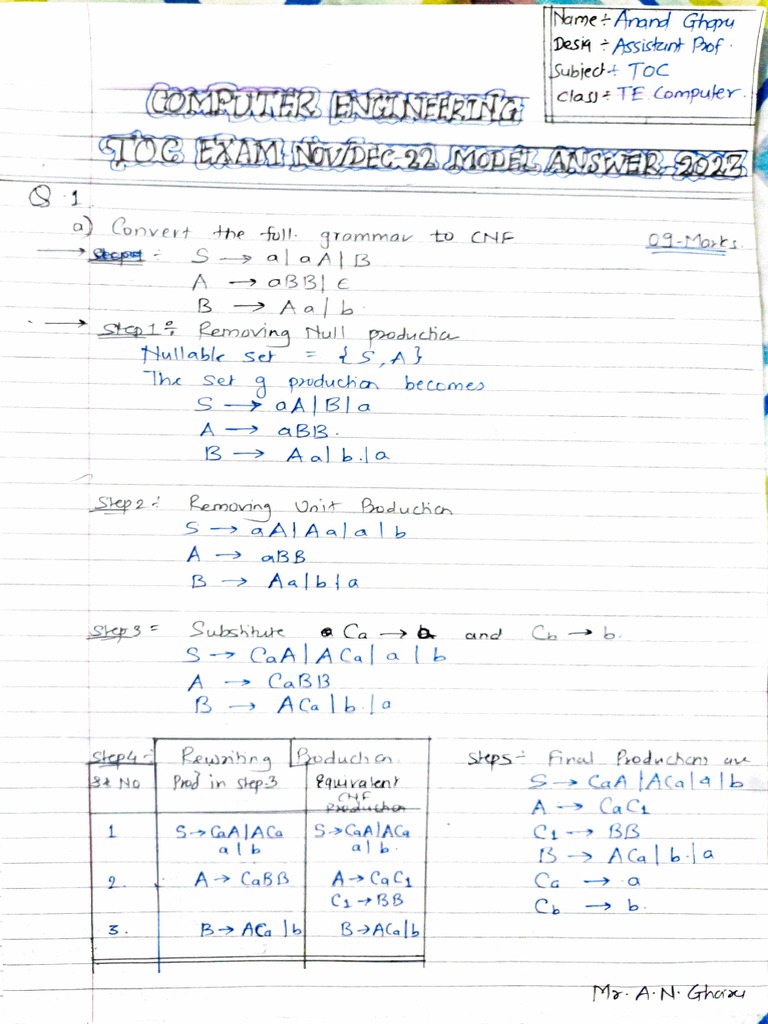 Name÷ Anand Gharu
Desig ÷ Assistant Prof.
Subject÷ TOC
Class÷ TE Computer.
COMPUTER ENGINEERING
TOC EXAM NOV/DEC-22 MODEL ANSWER-2023
Q.1
a) Convert the foll. grammar to CNF 09-Marks.
→ S → a|aA|B
A → aBB|ε
B → Aa|b.
→ Step1÷ Removing Null production
Nullable set = {S,A}
The set of production becomes
S → aA|B|a
A → aBB.
B → Aa|b.|a
Step2÷ Removing Unit Production
S → aA|Aa|a|b
A → aBB
B → Aa|b|a
Step3= Substitute Ca → a and Cb → b.
S → CaA|ACa|a|b
A → CaBB
B → ACa|b.|a
Step4÷ Rewriting Production
Sr No Prod in step-3 Equivalent CNF production
1 S→CaA|ACa S→CaA|ACa
a|b a|b.
2. A→CaBB A→CaC1
C1→BB
3. B→ACa|b B→ACa|b
Step5÷ Final Productions are
S → CaA|ACa|a|b
A → CaC1
C1 → BB
B → ACa|b.|a
Ca → a
Cb → b.
Mr. A.N. Gharu